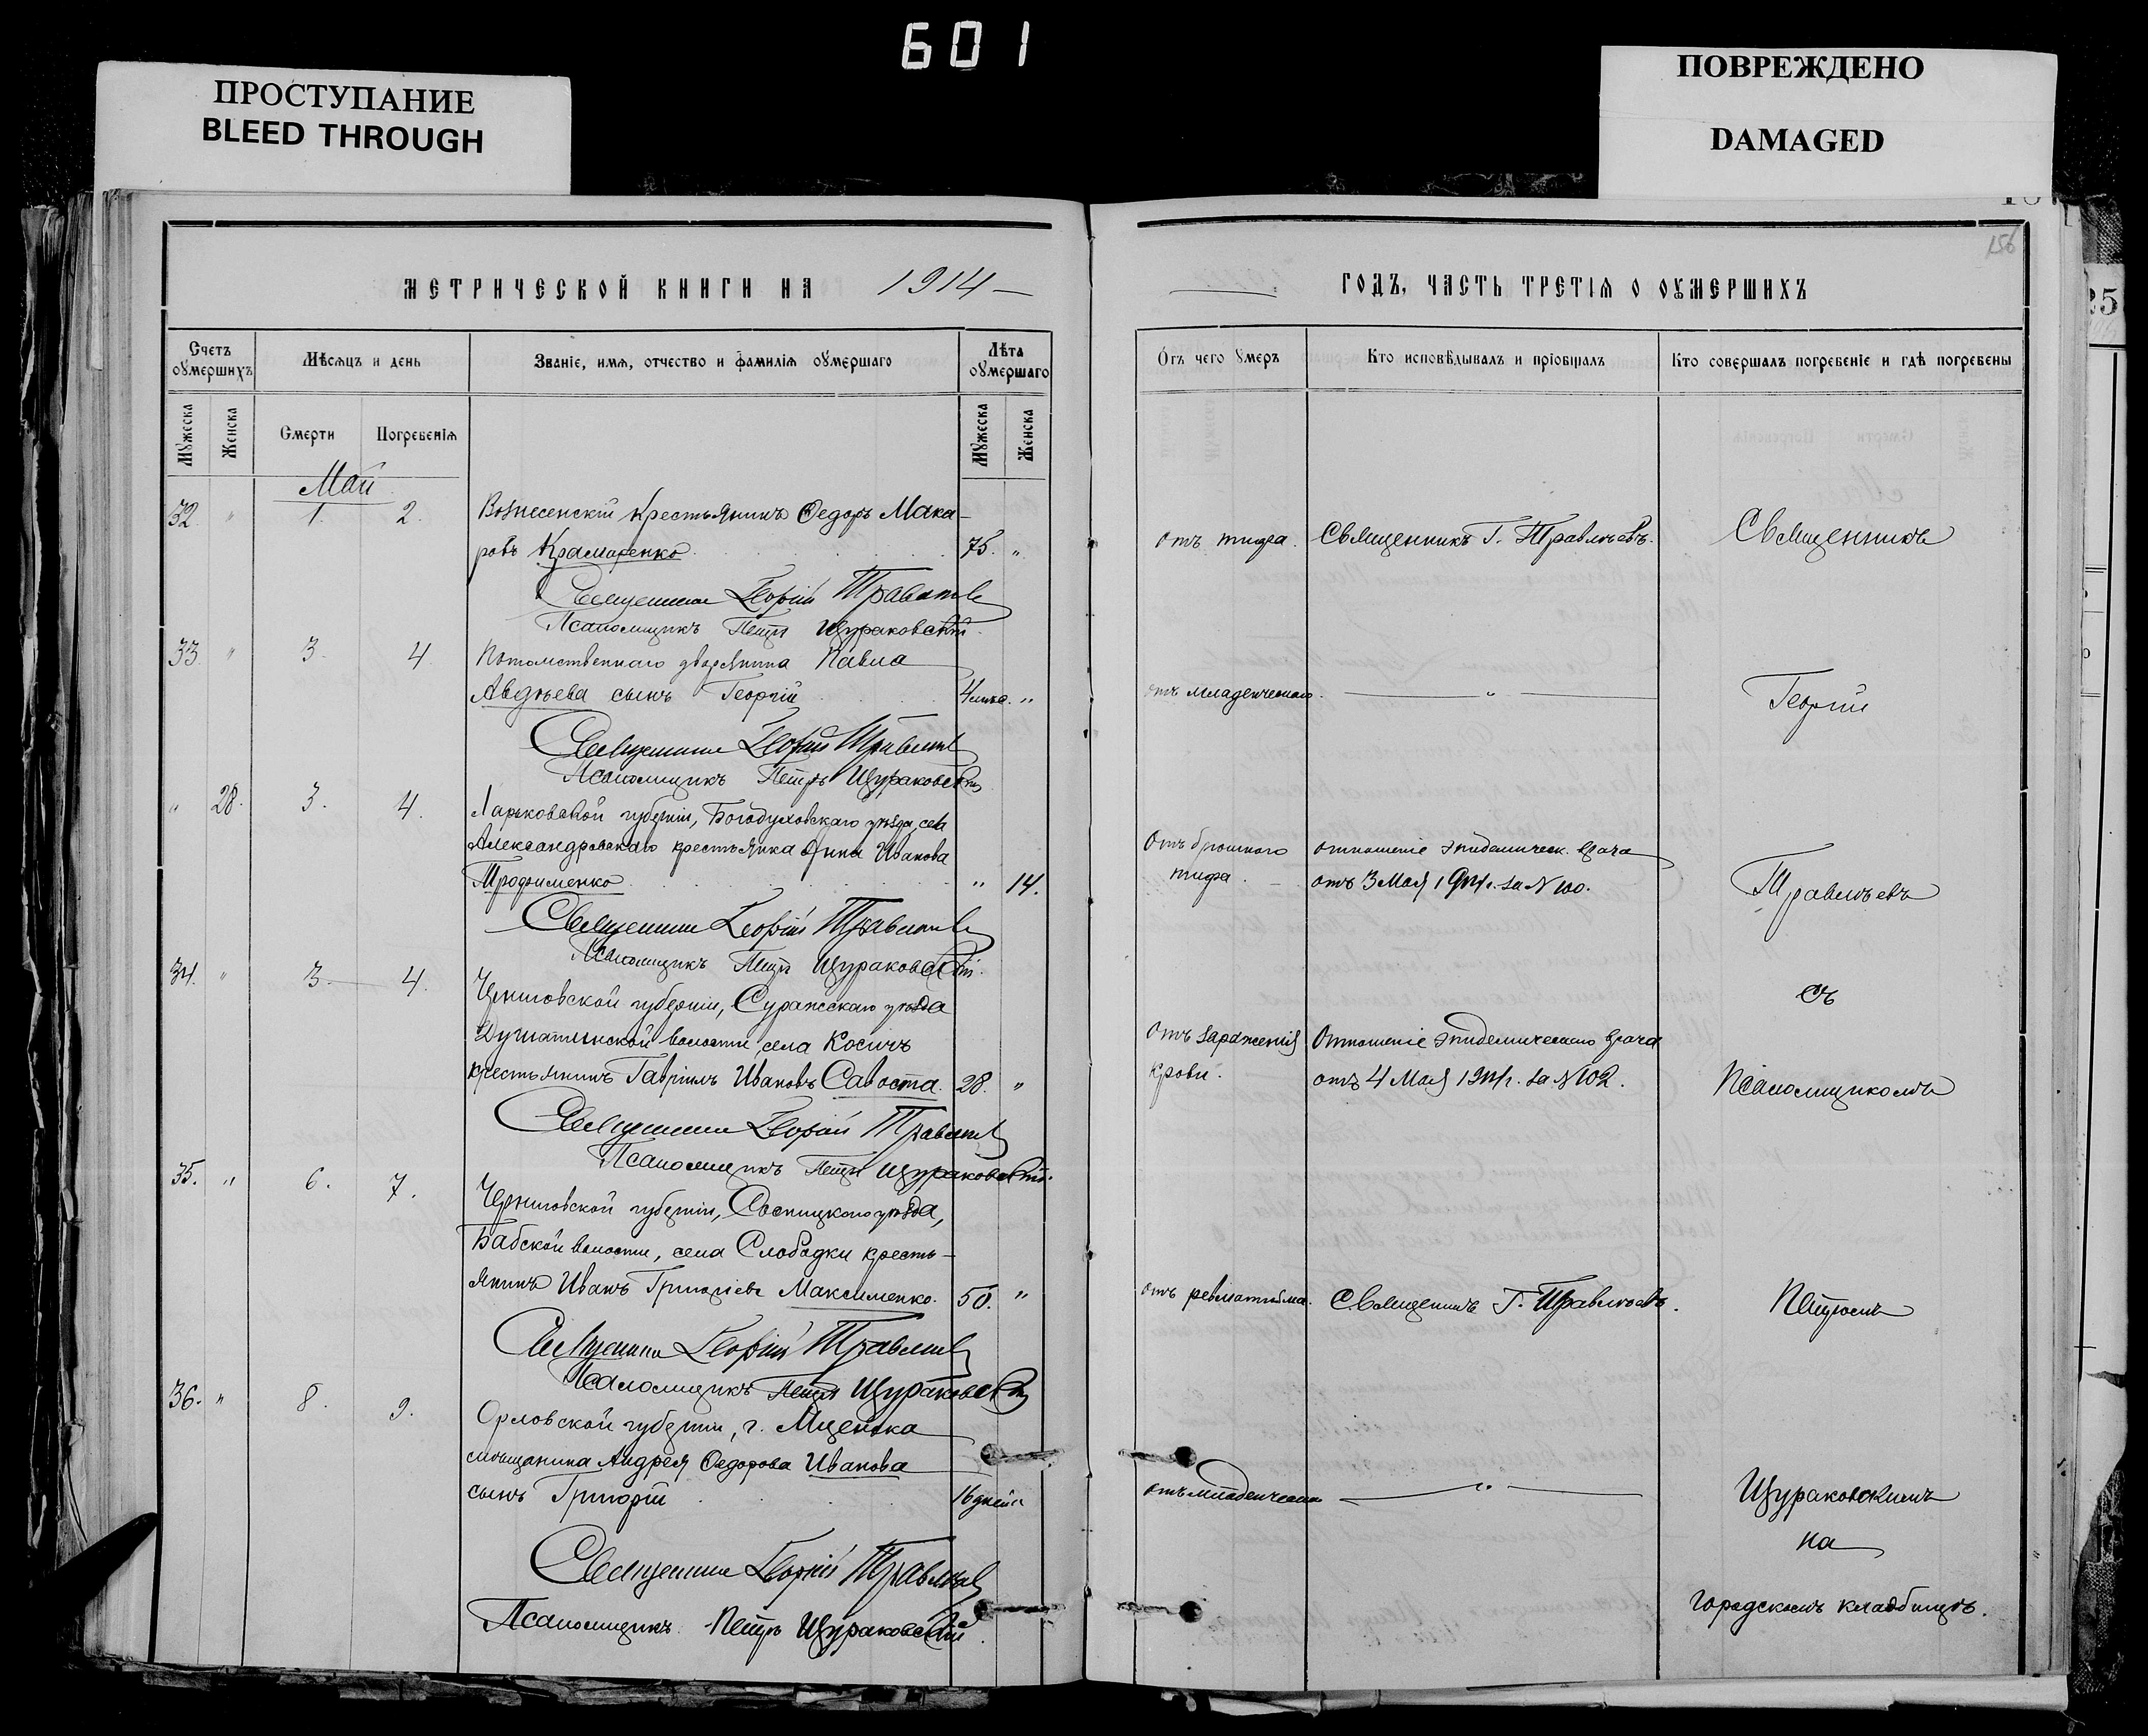 601
ПРОСТУПАНИЕ
BLEED THROUGH
ПОВРЕЖДЕНО
DAMAGED
156
25
МЕТРИЧЕСКОЙ КНИГИ НА 1914
Счетъ оумершихъ
Мѣсяцъ и день
Званіе, имя, отчество и фамилія оумершаго
Лѣта оумершаго
Мужеска
Женска
Смерти
Погребенія
Мужеска
Женска
Май
32. " 1. 2. Вознесенскій крестьянинъ Ѳедоръ Мака-
ровъ Крамаренко 75. "
Священникъ Георгій Травлѣевъ
Псаломщикъ Петръ Щураковскій
33. " 3. 4. Потомственнаго дворянина Павла
Авдѣева сынъ Георгій "
Священникъ Георгій Травлѣевъ
Псаломщикъ Петръ Щураковскій
" 28. 3. 4. Харьковской губерніи, Богодуховскаго уѣзда, села
Александровскаго крестьянка Анна Иванова
Трофименко " 14.
Священникъ Георгій Травлѣевъ
Псаломщикъ Петръ Щураковскій.
34. " 3. 4. Черниговской губерніи, Суражскаго уѣзда
Душатинской волости, села Косичъ
крестьянинъ Гавріилъ Ивановъ Савоста. 28. "
Священникъ Георгій Травлѣевъ
Псаломщикъ Петръ Щураковскій.
35. " 6. 7. Черниговской губерніи, Сосницкаго уѣзда,
Бабской волости, села Слободки кресть-
янинъ Иванъ Григоріевъ Максименко. 50. "
Священникъ Георгій Травлѣевъ
Псаломщикъ Петръ Щураковскій
36. " 8. 9. Орловской губерніи, г. Мценска
мѣщанина Андрея Ѳедорова Иванова
сынъ Григорій 16 дней "
Священникъ Георгій Травлѣевъ
Псаломщикъ Петръ Щураковскій.
ГОДЪ, ЧАСТЬ ТРЕТІЯ О ОУМЕРШИХЪ
Отъ чего умеръ
Кто исповѣдывалъ и пріобщалъ
Кто совершалъ погребеніе и гдѣ погребены
отъ тифа. Священникъ Г. Травлѣевъ. Священникъ
отъ младенческаго. " Георгій
Отъ брюшного отношеніе эпидемическ. врача
тифа. отъ 3 Мая 1914 г. за № 100. Травлѣевъ
съ
Отъ зараженія Отношеніе эпидемическаго врача
крови. отъ 4 Мая 1914 г. за № 102. Псаломщикомъ
отъ ревматизма. Священникъ Г. Травлѣевъ. Петромъ
отъ младенческаго " Щураковскимъ
на
городскомъ кладбищѣ.